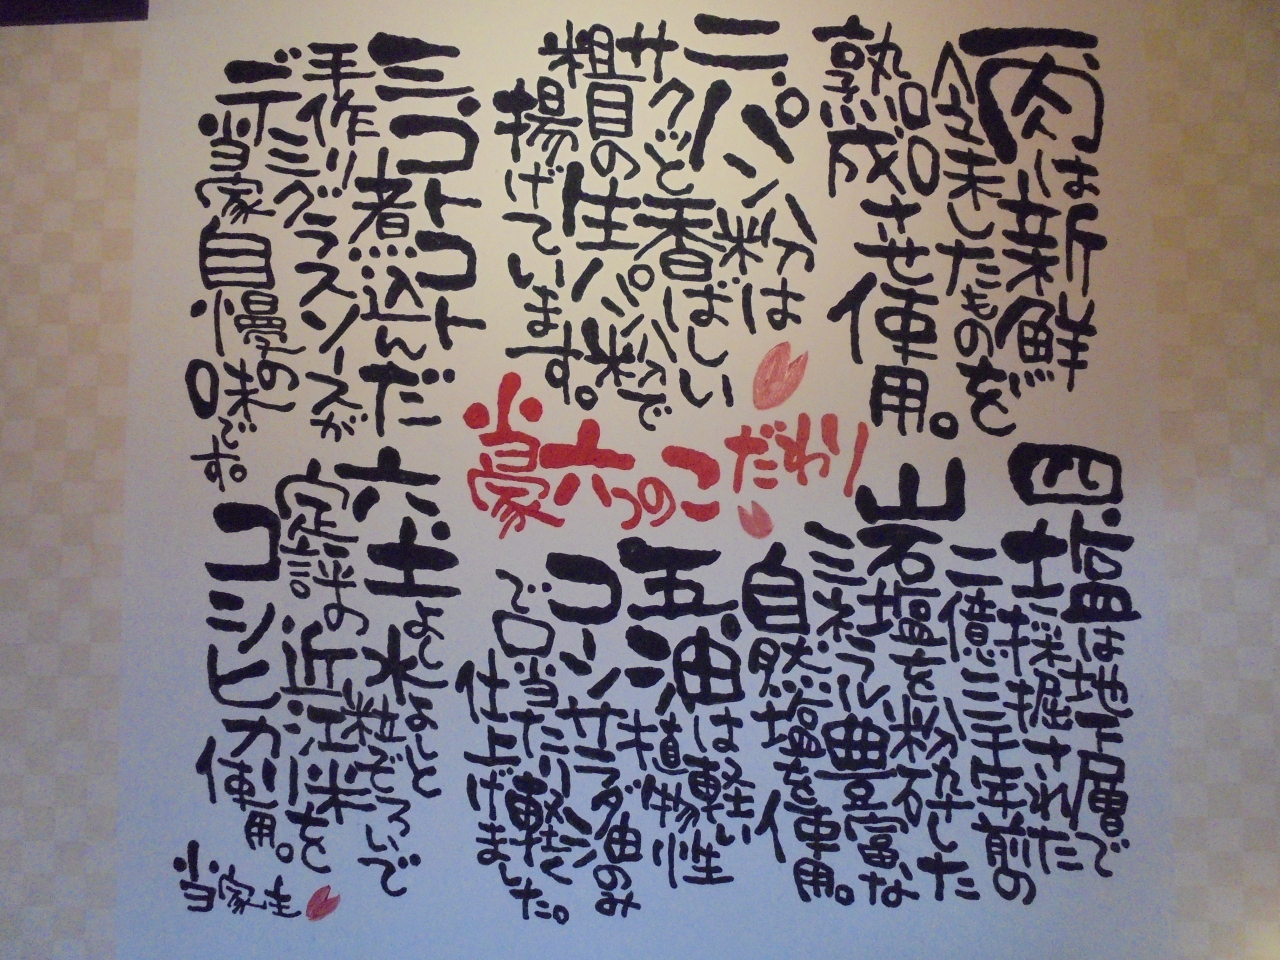 一 肉は新鮮
吟味したものを
熟成させ使用。
二、パン粉は
サクッと香ばしい
粗目の生パン粉で
揚げています。
三、コトコト
煮込んだ
手作りデミグラスソースが
当家自慢の味です。
当家六つのこだわり
四、塩は地下層で
採掘された
二億三千年前の
岩塩を粉砕した
ミネラル豊富な
自然塩を使用。
五、油は軽い
植物性
コーンサラダ油のみ
で口当たり軽く
仕上げました。
六、土よし水よしと
粒ぞろいで
定評の近江米を
コシヒカリ使用。
当家主